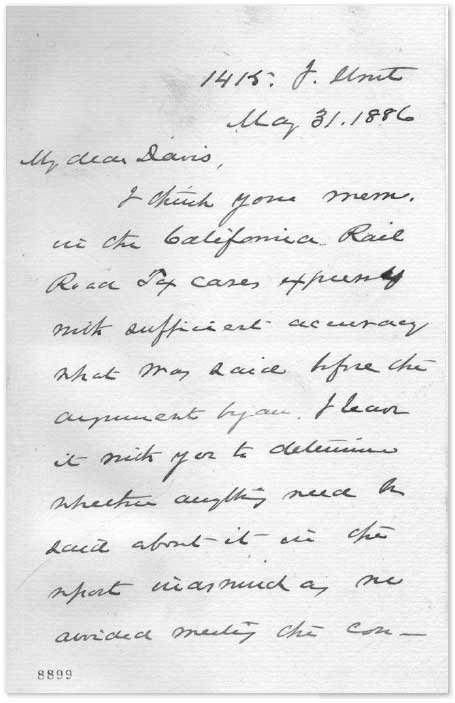 1415. I. Street
May 31. 1886
My dear Davis,
I think your mem.
in the California Rail
Road Tax cases expresses
with sufficient accuracy
what was said before the
argument began. I leave
it with you to determine
whether anything need be
said about it in the
report inasmuch as we
avoided meeting the con-
8899